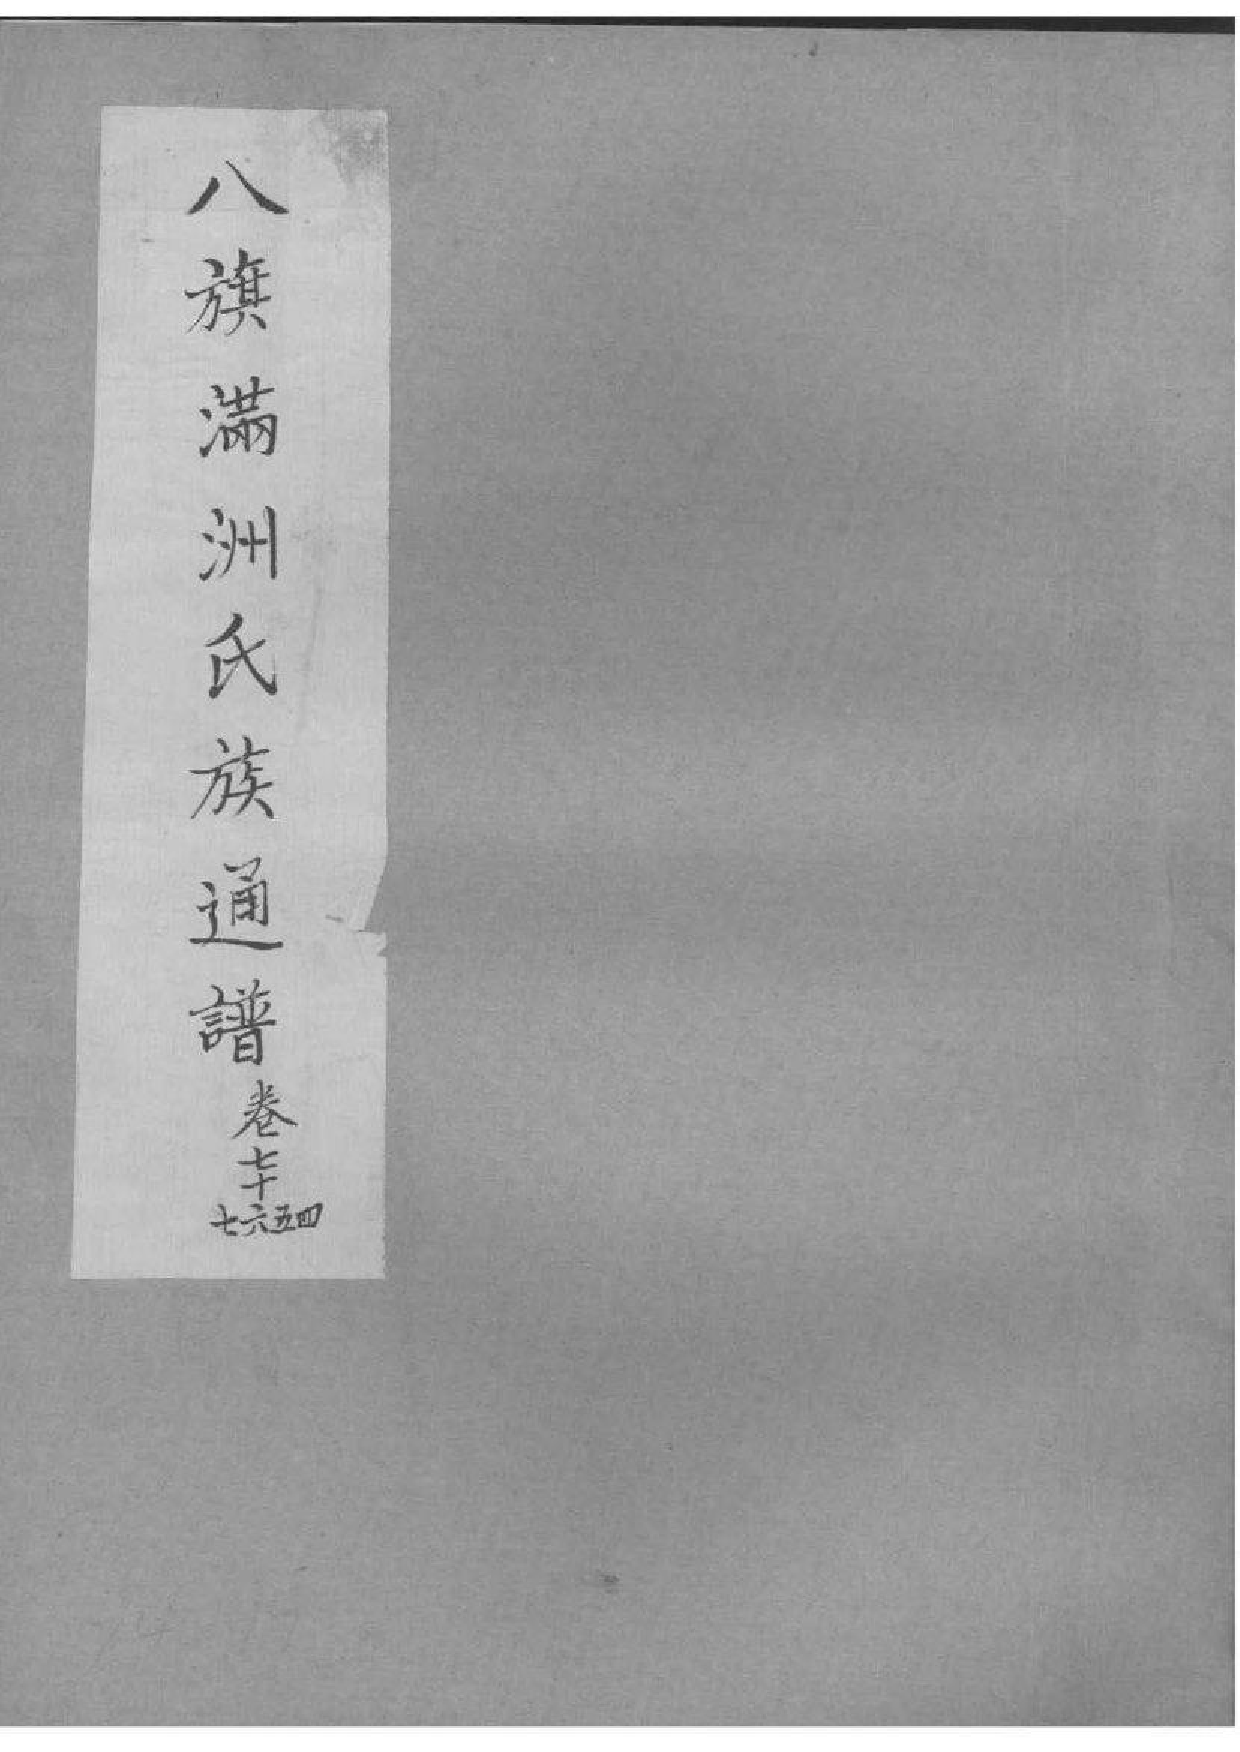 八旗滿洲氏族通譜
卷七十
四五六七